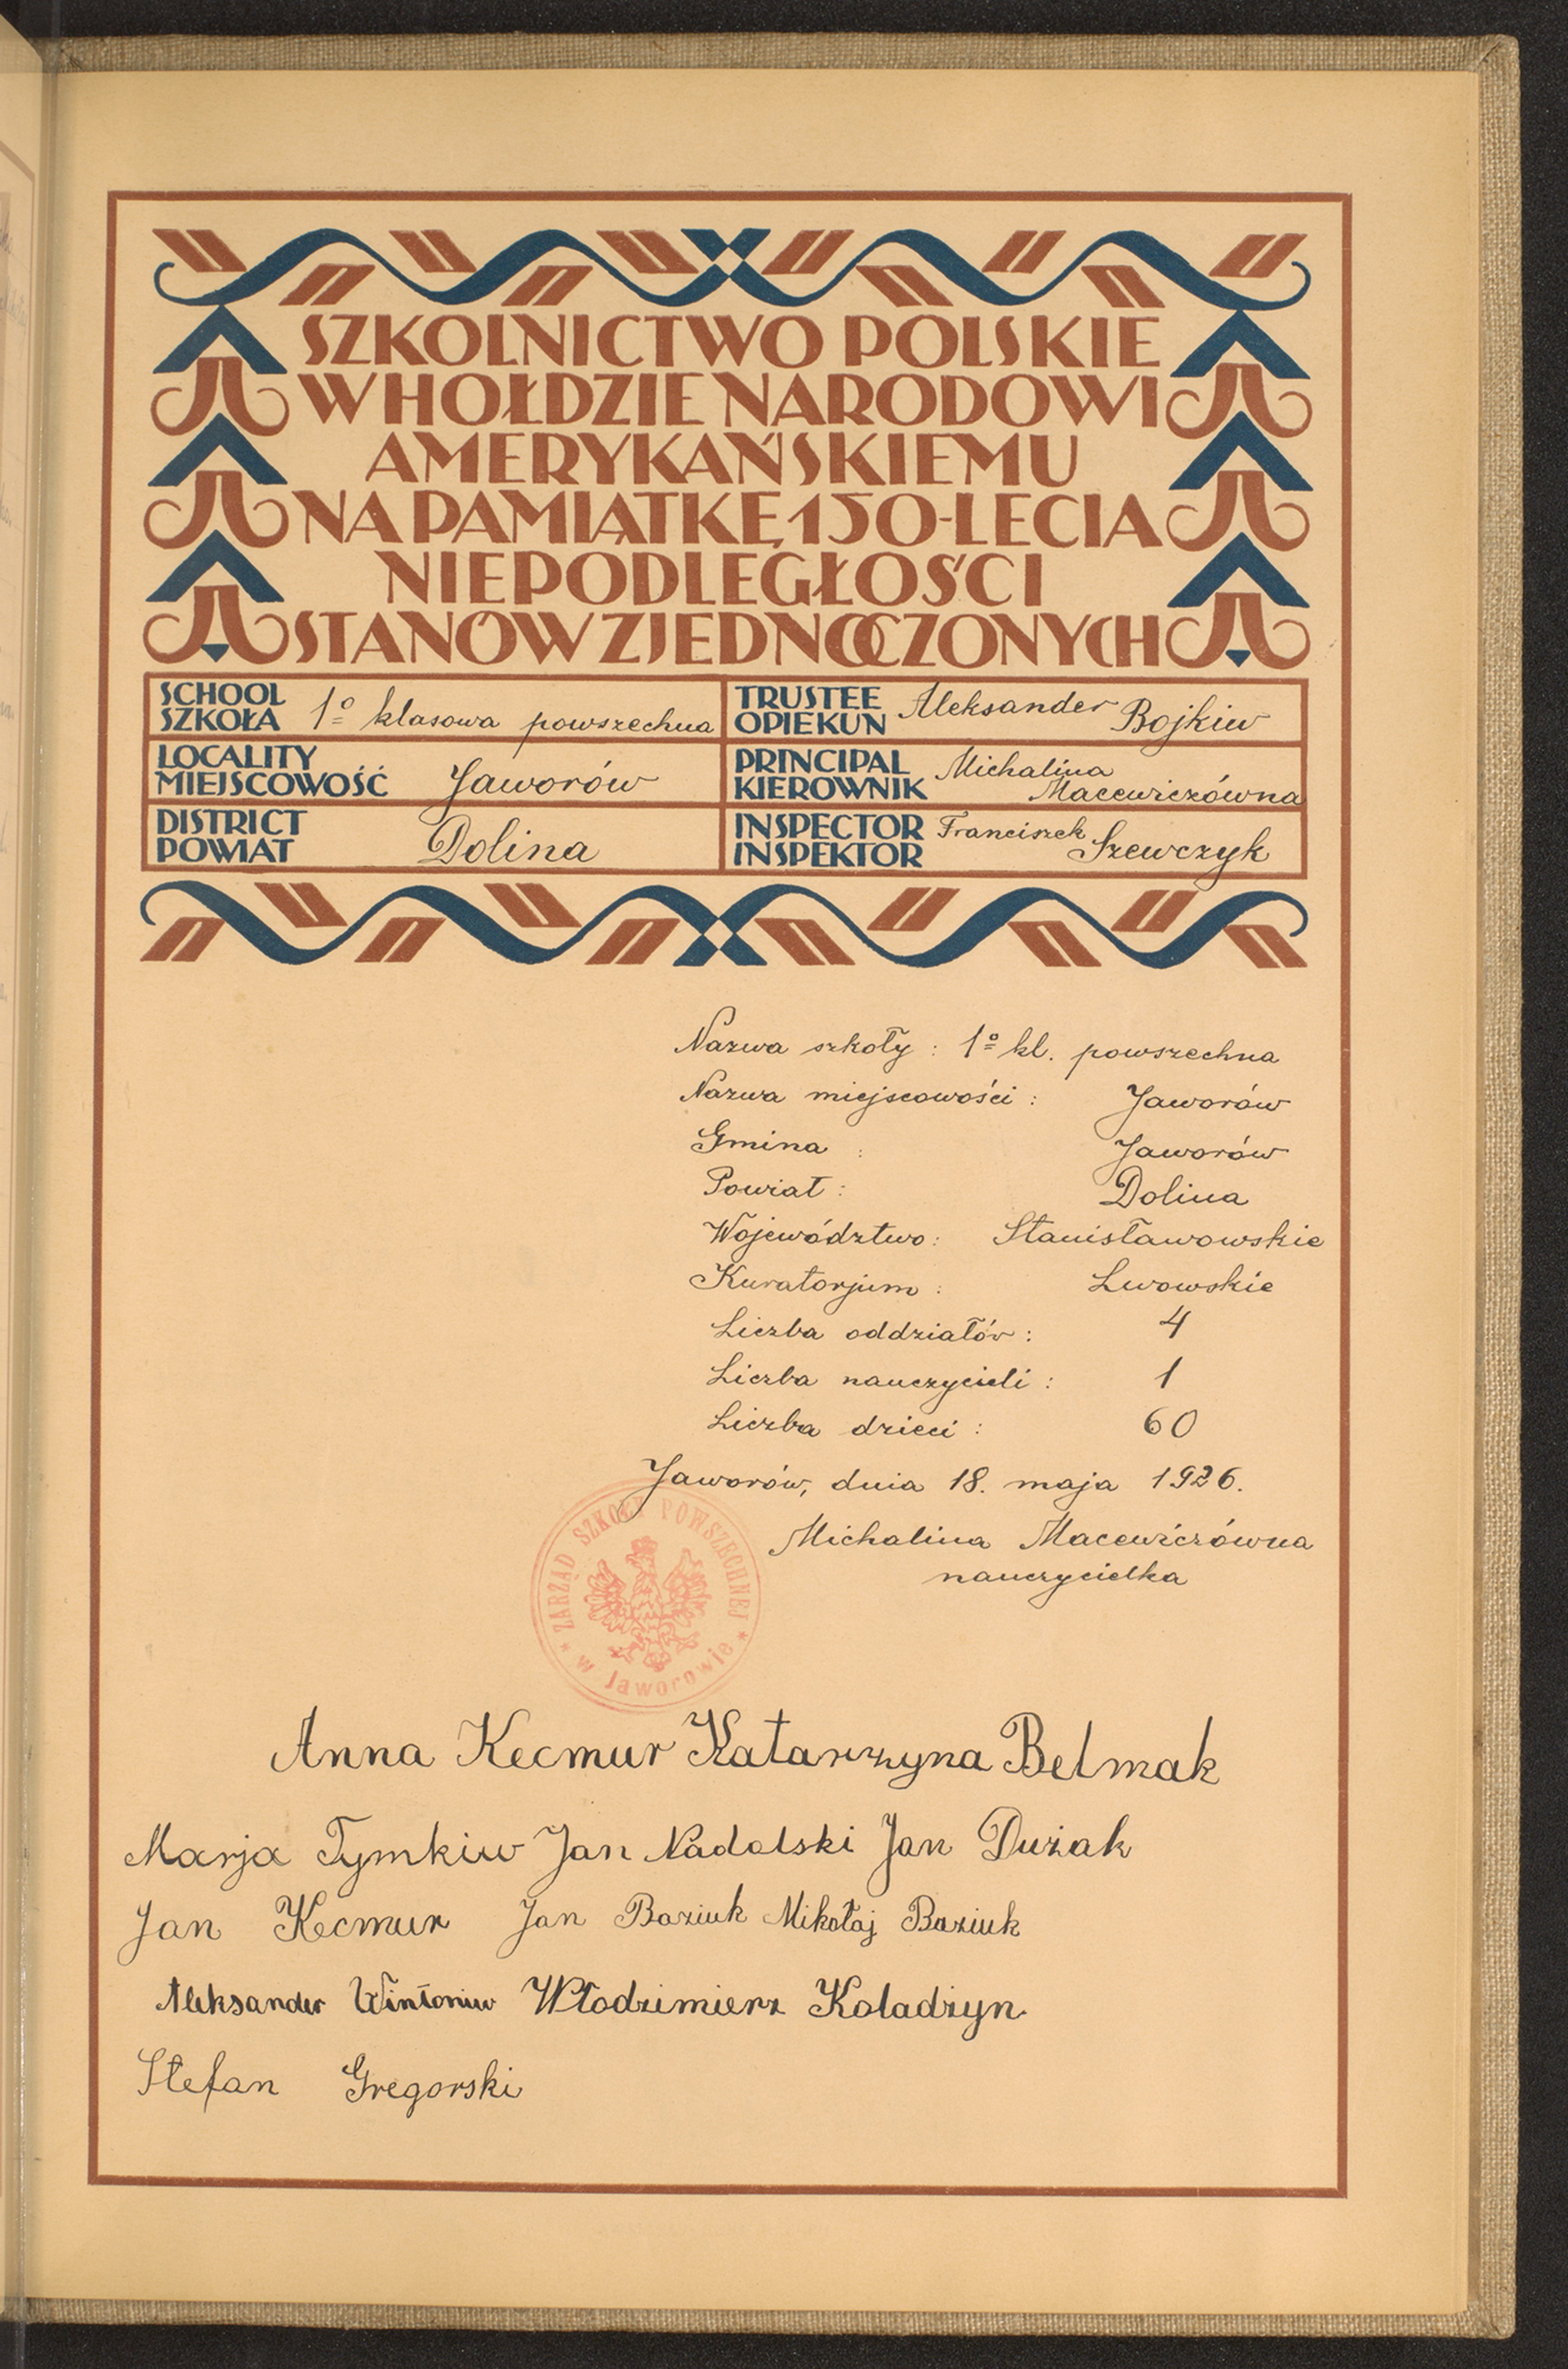 SZKOLNICTWO POLSKIE
W HOŁDZIE NARODOWI
AMERYKAŃSKIEMU
NA PAMIĄTKĘ 150-LECIA
NIEPODLEGŁOŚCI
STANÓW ZJEDNOCZONYCH
SCHOOL
SZKOŁA 1º klasowa powszechna
TRUSTEE
OPIEKUN Aleksander Bojkiw
LOCALITY
MIEJSCOWOŚĆ Jaworów
PRINCIPAL
KIEROWNIK Michalina Macewiczówna
DISTRICT
POWIAT Dolina
INSPECTOR
INSPEKTOR Franciszek Szewczyk
Nazwa szkoły : 1º kl. powszechna
Nazwa miejscowości : Jaworów
Gmina : Jaworów
Powiat : Dolina
Województwo : Stanisławowskie
Kuratorjum : Lwowskie
Liczba oddziałów : 4
Liczba nauczycieli : 1
Liczba dzieci : 60
Jaworów, dnia 18. maja 1926.
Michalina Macewiczówna
nauczycielka
ZARZĄD SZKOŁY POWSZECHNEJ
* w Jaworowie *
Anna Kecmur Katarzyna Belmak
Marja Tymkiw Jan Nadolski Jan Dużak
Jan Kecmur Jan Baziuk Mikołaj Baziuk
Aleksander Wintoniw Włodzimierz Koladżyn
Stefan Gregorski